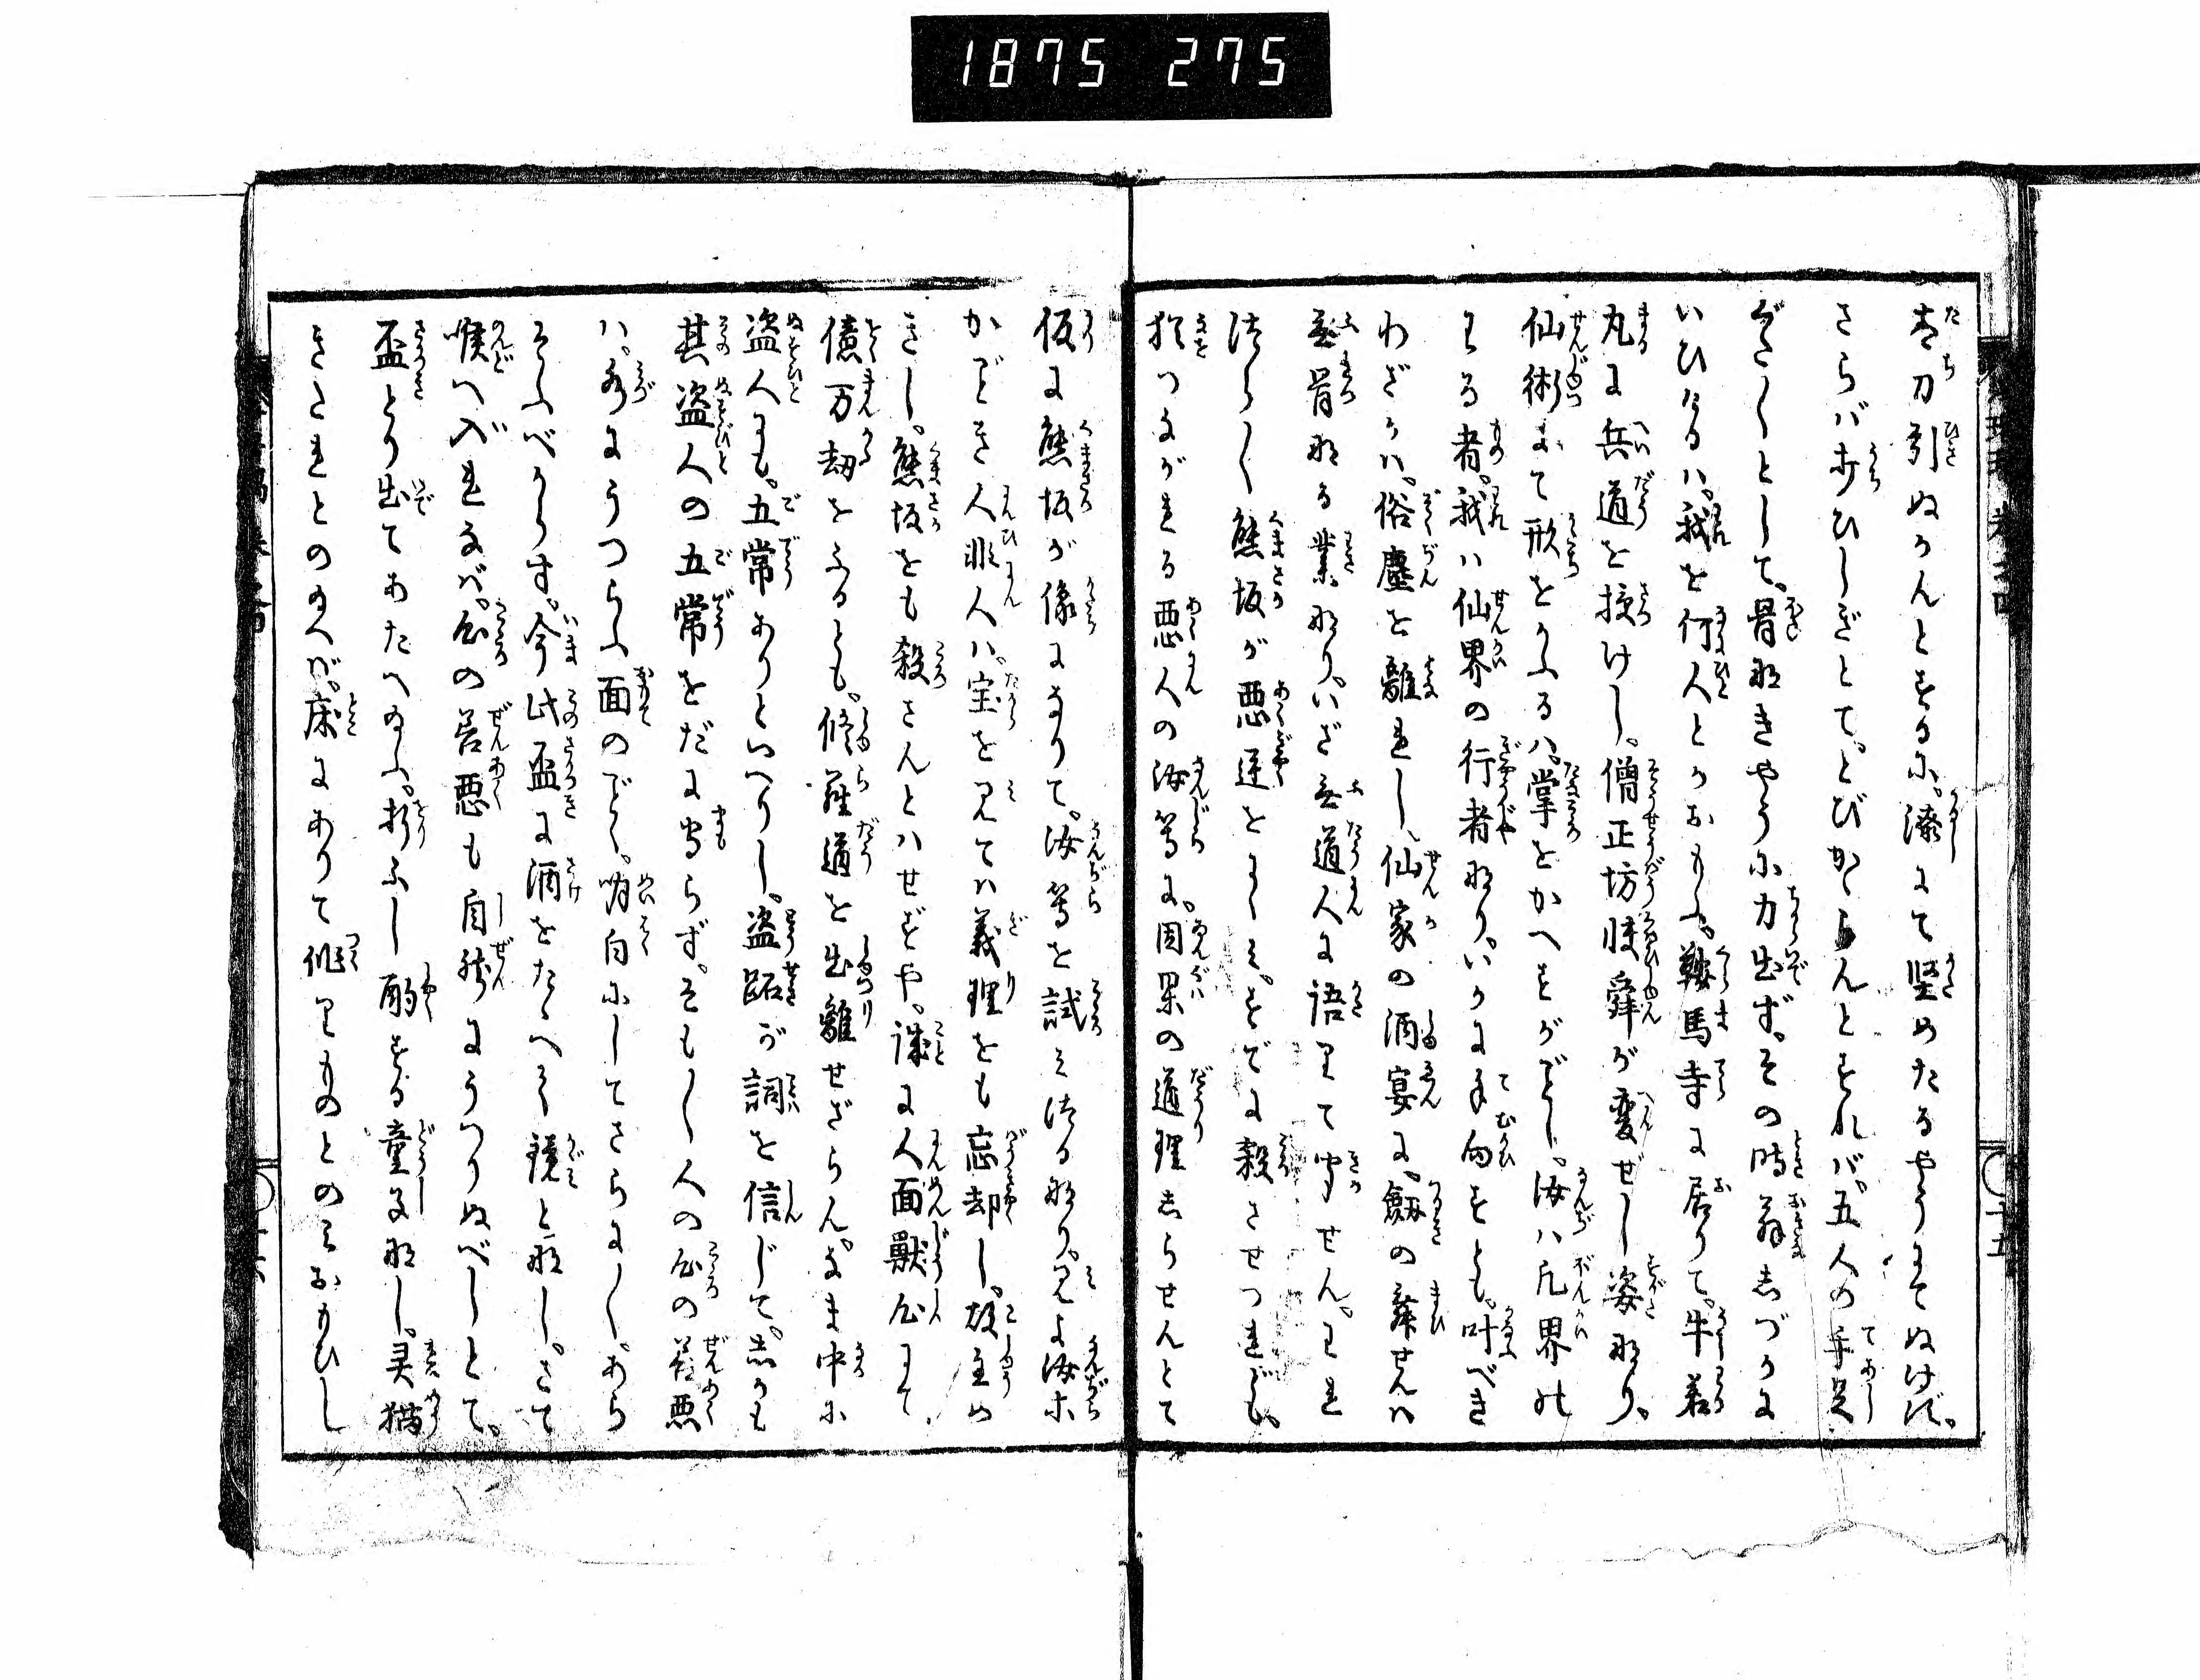 1875 275
太刀引ぬかんとするに。漆にて堅めたるやうにてぬけず。
さらバ歩ひしぎとて。とびかゝらんとすれバ。五人の手足
ぐた〳〵として。骨なきやうに力出ず。その時翁しづかに
いひけるハ。我を何人とかおもふ。鞍馬寺に居りて。牛若
丸に兵道を授けし。僧正坊膝舜が変ぜし姿なり。
仙術にて形をかふるハ。掌をかへすがごとし。汝ハ凡界の
わる者。我ハ仙界の行者なり。いかに手向をすとも。叶べき
わざかハ。俗塵を離れし。仙家の酒宴に。劔の舞せんハ
無骨なる業なり。いざ無道人に語りて聞せん。われ
つら〳〵熊坂が悪逆をにくミ。すでに殺させつれども。
猶つながれる悪人の汝等に。因果の道理しらせんとて
仮に熊坂が像になりて。汝等を試ミつるなり。見よ汝等
かごとき人非人ハ。宝を見てハ義理をも忘却し。故主め
きし。熊坂をも殺さんとハせずや。誠に人面獣心にて。
億万劫をふるとも。修羅道を出離せざらん。なま中に
盗人にも。五常ありといへりし。盗跖が詞を信じて。しかも
其盗人の五常をだに守らず。そも〳〵人の心の善悪
ハ。水にうつらふ面のごとく。明白にしてさらに〳〵。あら
そふべからず。今此盃に酒をたゝへて鏡となし。さて
喉へ入れなバ。心の善悪も自然にうつりぬべしとて。
盃とり出てあたへ給ふ。折ふし酌する童子なし。灵猫
きたれとのたまへバ。床にありて作りものとのミおもひし